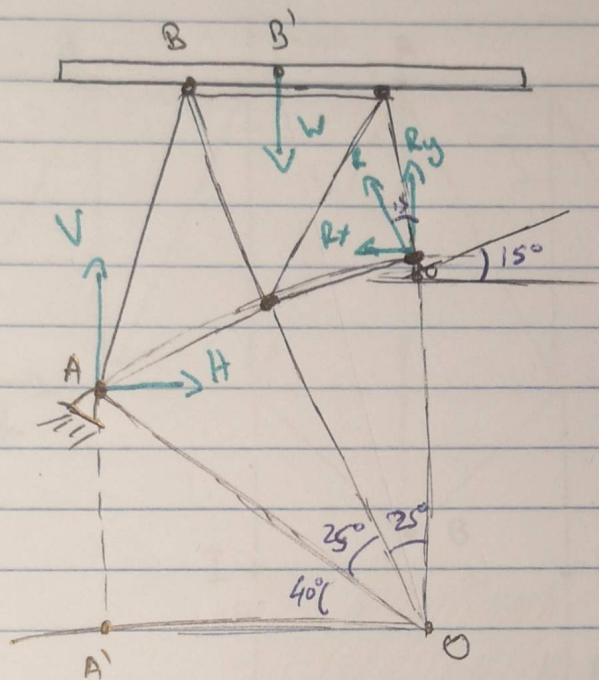 B B'
W
R Ry
V
15
Rx
15°
A H
25° 25°
40°
A' O